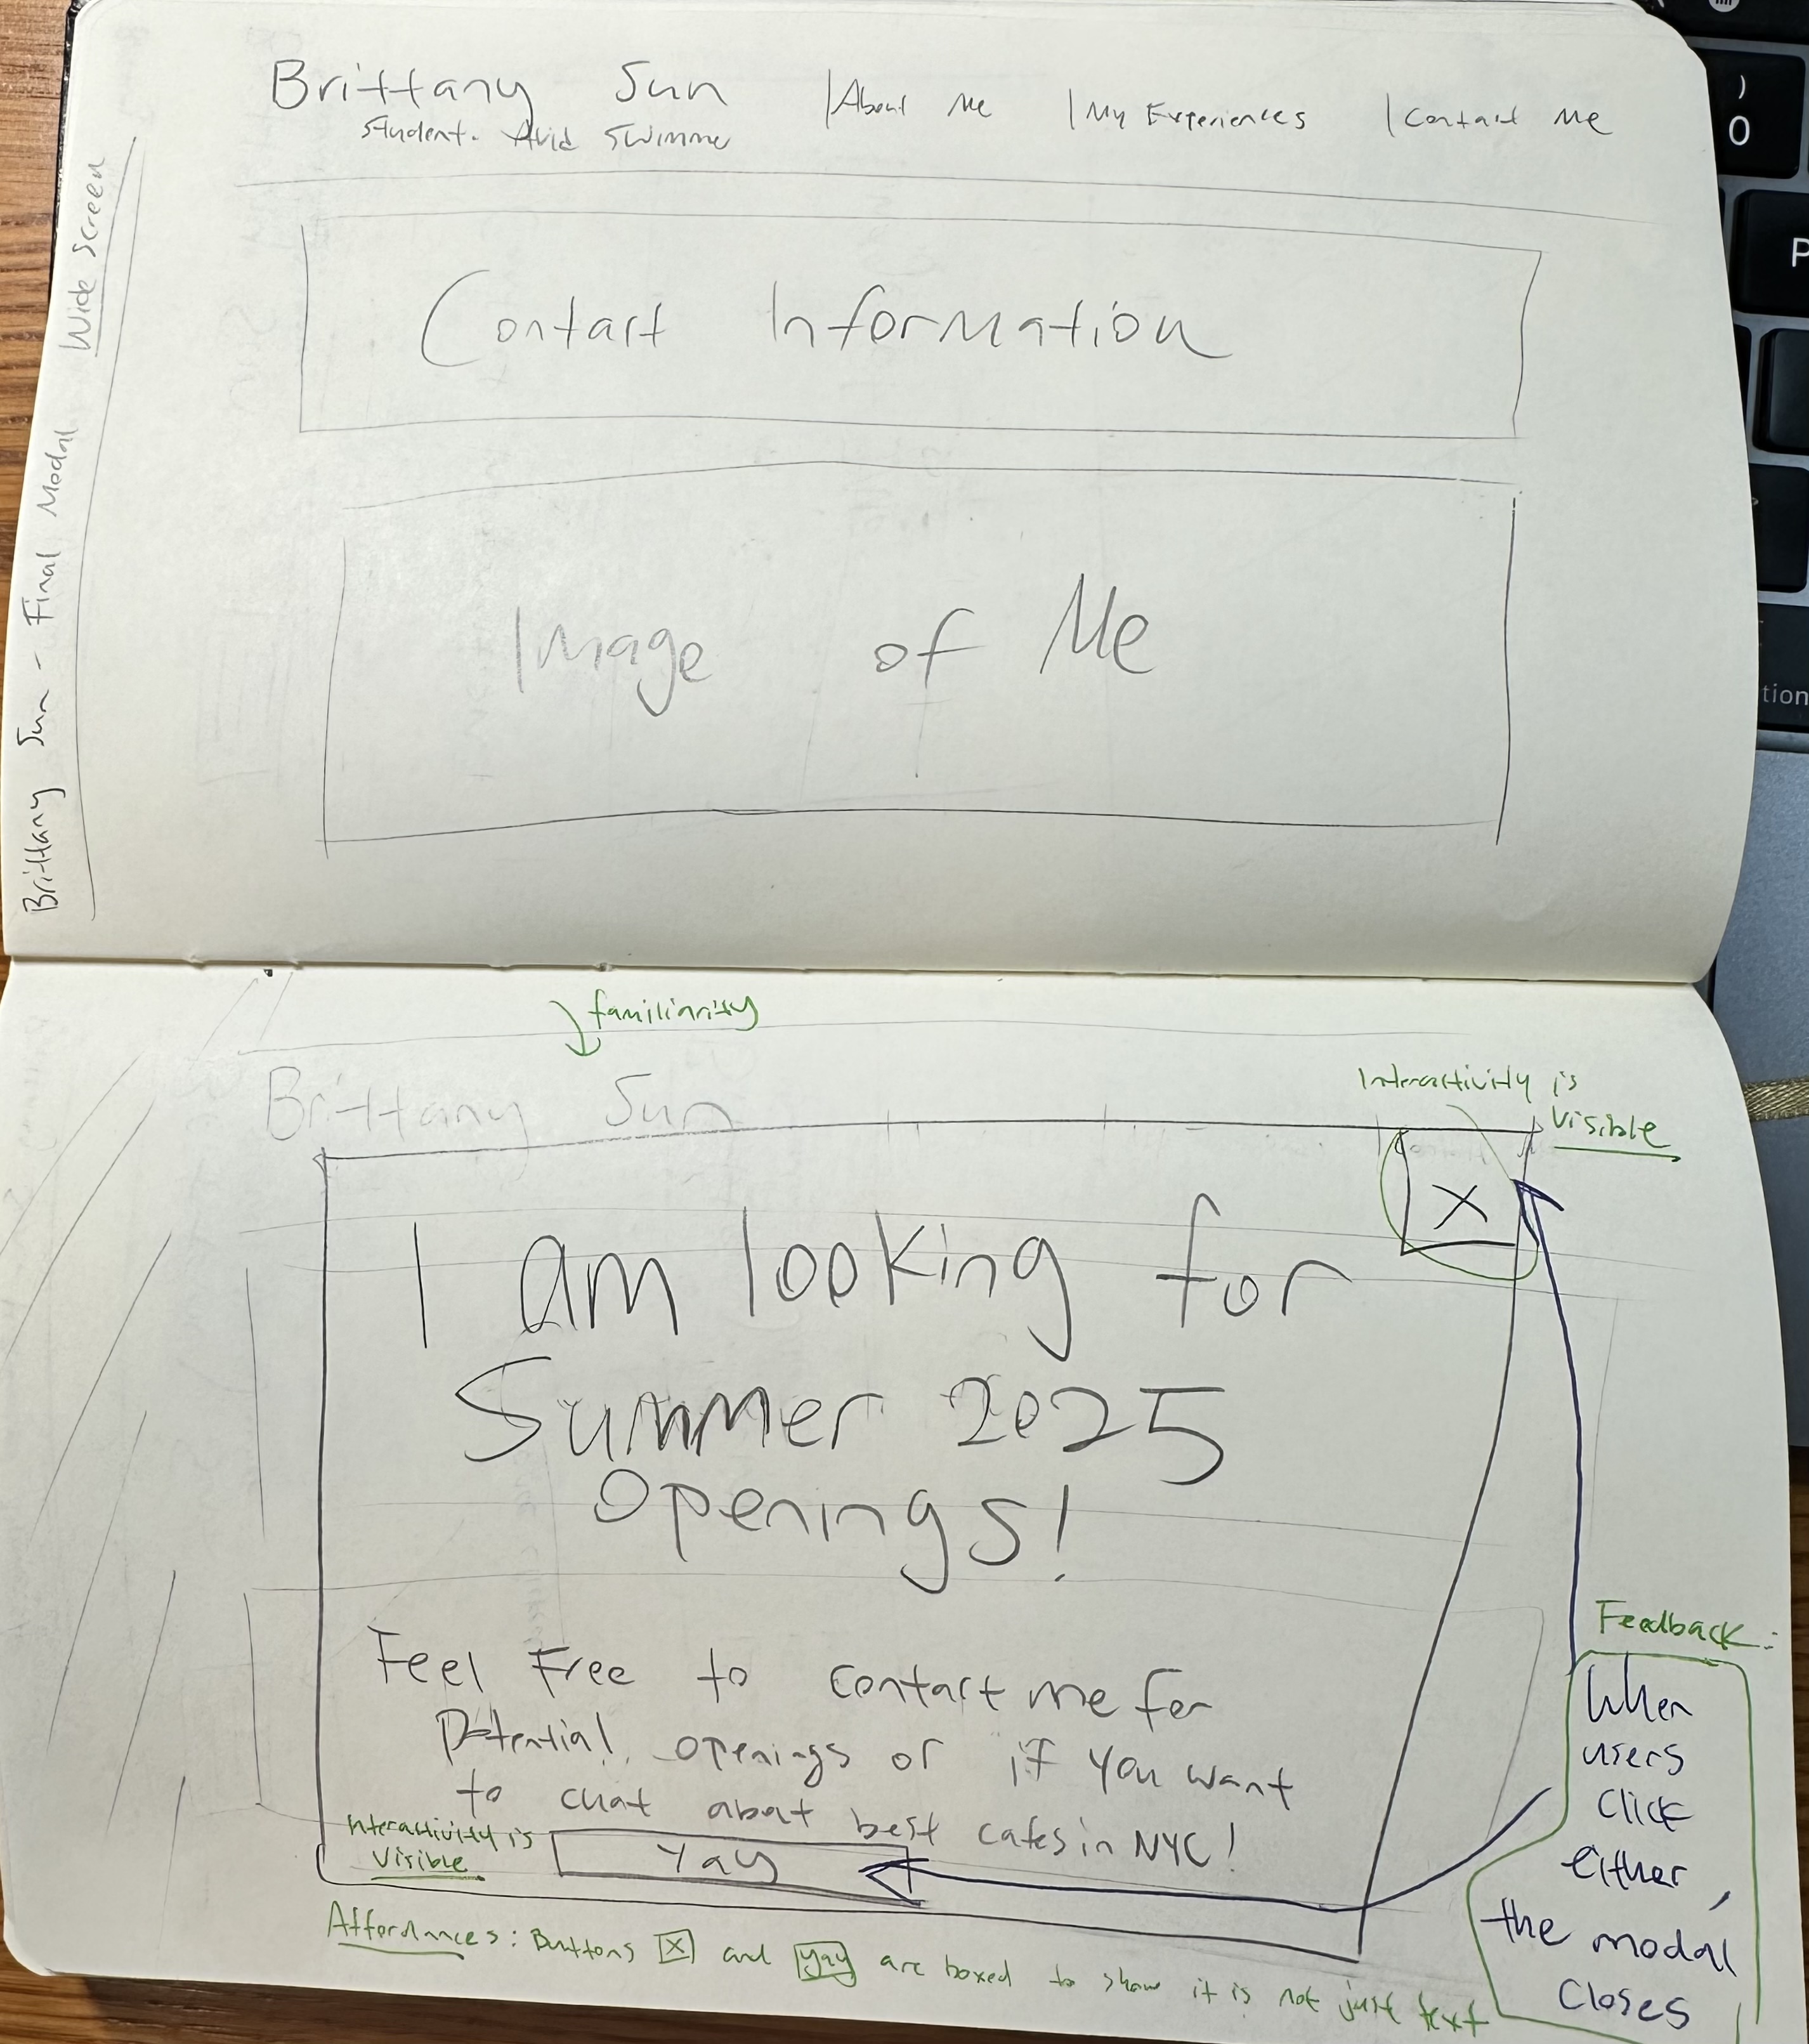 Brittany Sun
Student. Avid Swimmer
| About Me | My Experiences | Contact Me
Brittany Sun - Final Modal Wide Screen
Contact Information
Image of Me
familiarity
Brittany Sun
Interactivity is
Visible
X
I am looking for
Summer 2025
Openings!
Feel Free to contact me for
Potential openings or if you want
to chat about best cafes in NYC!
Interactivity is
Visible
Yay
Feedback:
When
users
click
either,
the modal
closes
Affordances: Buttons X and yay are boxed to show it is not just text
)
0
P
tion